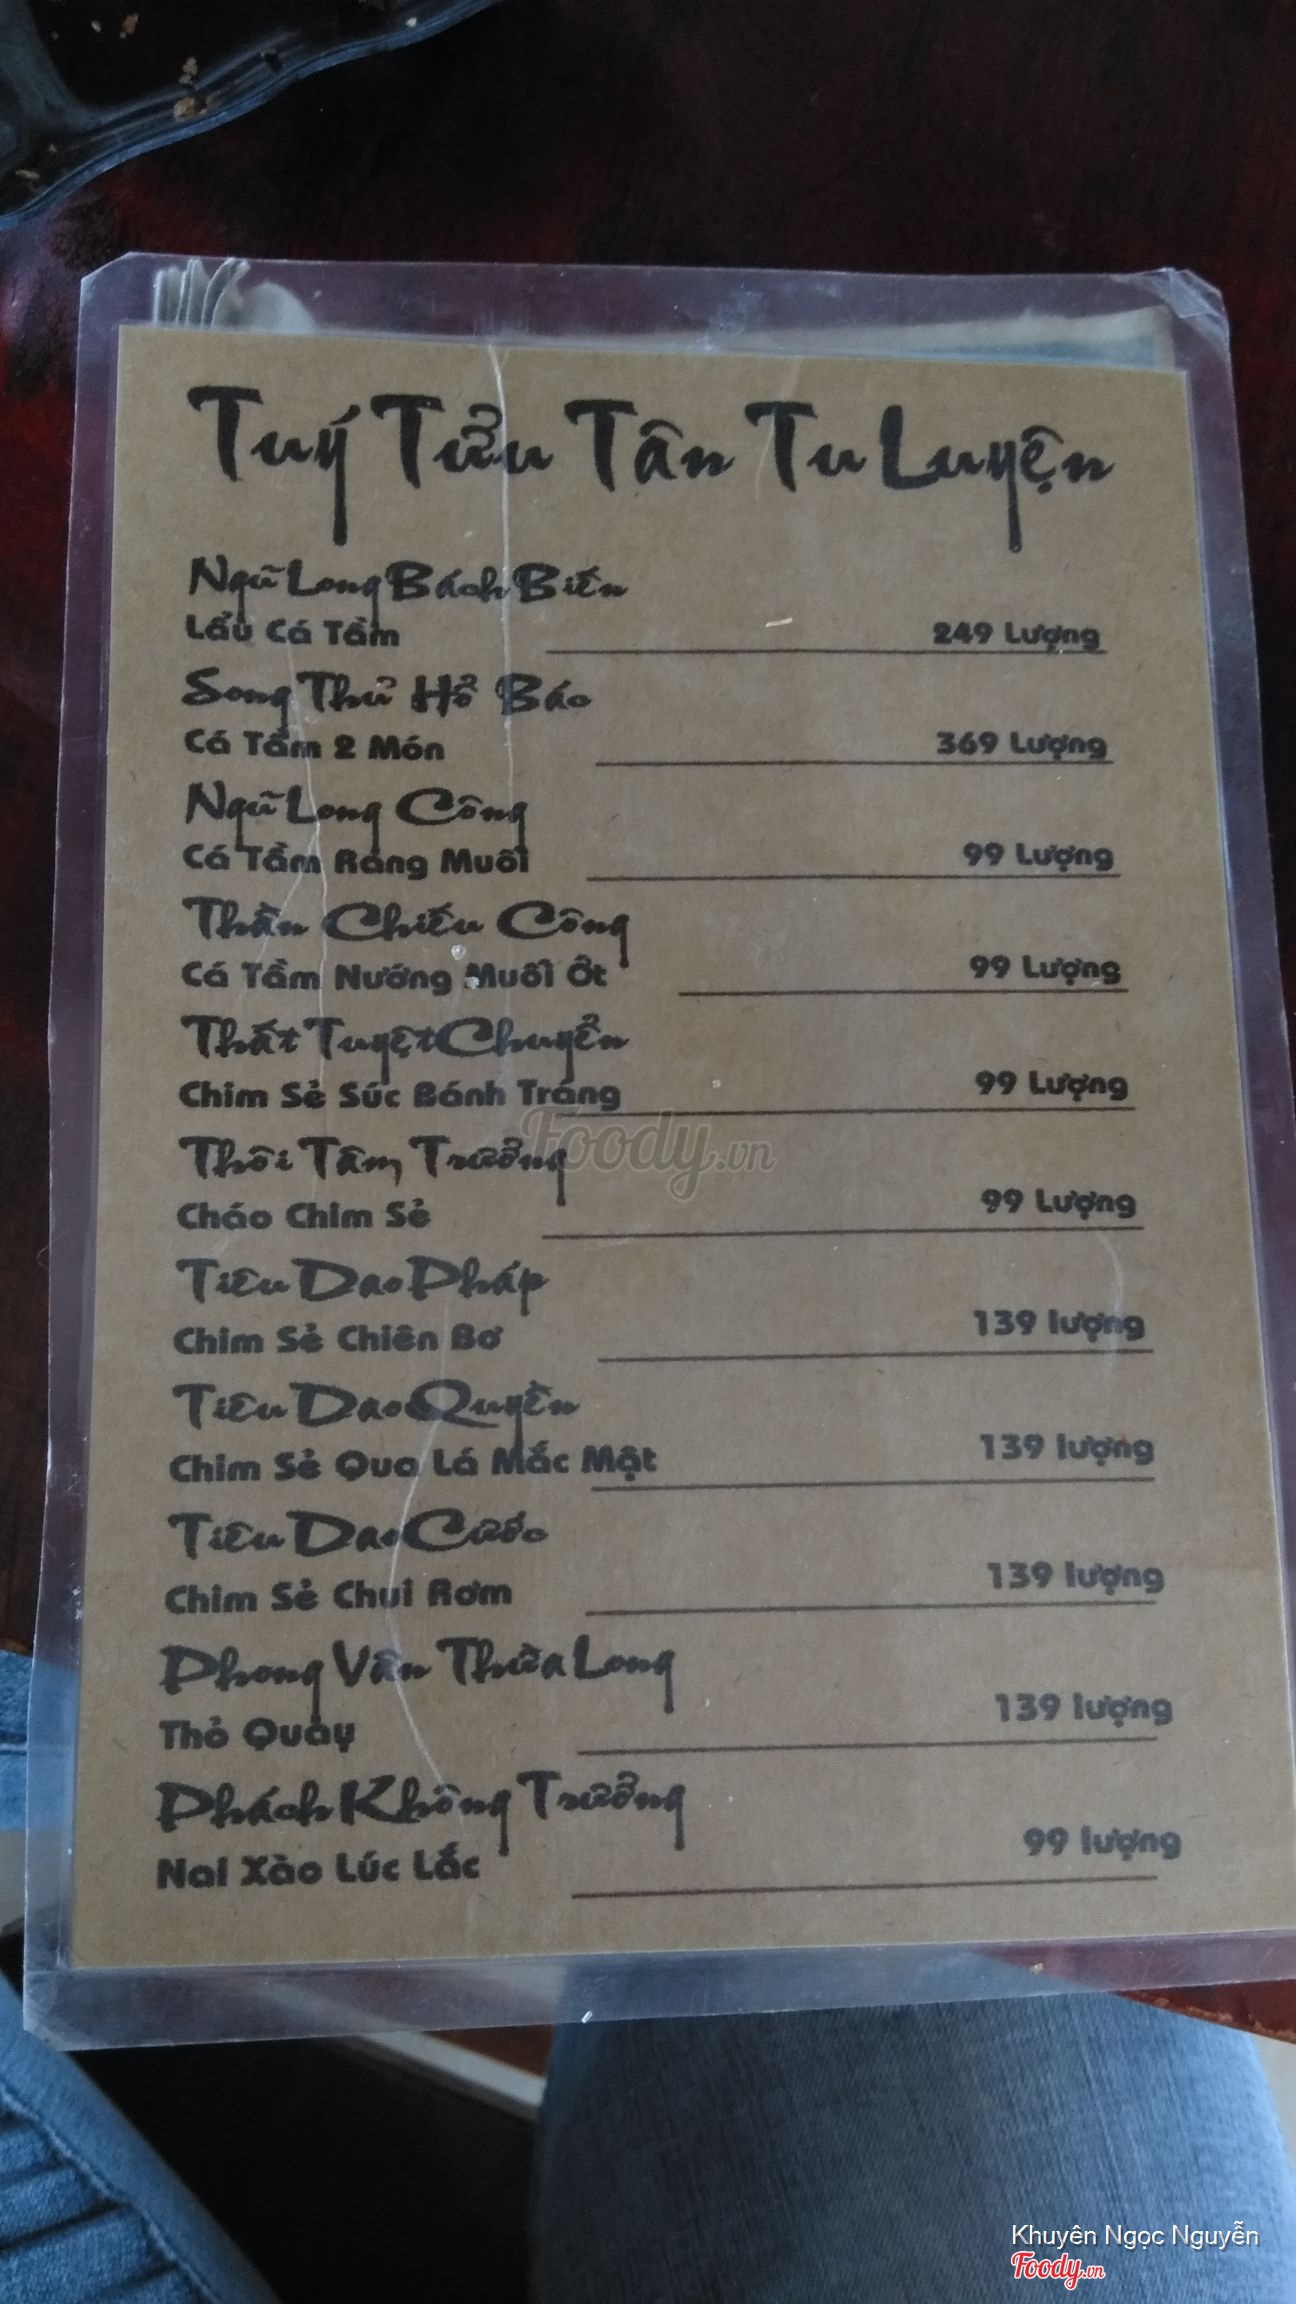 Tuý Tửu Tân Tu Luyện
Ngũ Long Bách Biến
Lẩu Cá Tầm 249 Lượng
Song Thủ Hổ Báo
Cá Tầm 2 Món 369 Lượng
Ngũ Long Công
Cá Tầm Rang Muối 99 Lượng
Thần Chiếu Công
Cá Tầm Nướng Muối Ớt 99 Lượng
Thất Tuyệt Chuyển
Chim Sẻ Súc Bánh Tráng 99 Lượng
Foody.vn
Thôi Tâm Trưởng
Cháo Chim Sẻ 99 Lượng
Tiêu Dao Pháp
Chim Sẻ Chiên Bơ 139 lượng
Tiêu Dao Quyền
Chim Sẻ Qua Lá Mắc Mật 139 lượng
Tiêu Dao Cước
Chim Sẻ Chui Rơm 139 lượng
Phong Vân Thừa Long
Thỏ Quay 139 lượng
Phách Không Trưởng
Nai Xào Lúc Lắc 99 lượng
Khuyên Ngọc Nguyễn
Foody.vn